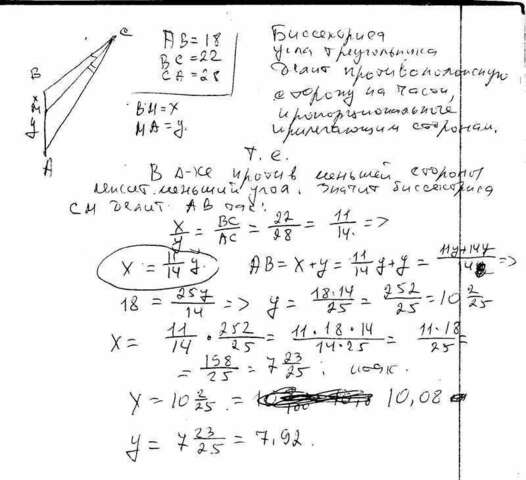 C
B
x
M
y
A
AB = 18
BC = 22
CA = 28
BM = x
MA = y.
Биссектриса
угла треугольника
делит противоположную
сторону на части,
пропорциональные
прилегающим сторонам.
Т. е.
В Δ-ке против меньшей стороны
лежит меньший угол. Значит биссектриса
CM делит AB так:
x/y = BC/AC = 22/28 = 11/14. =>
x = 11/14 y. AB = x + y = 11/14 y + y = 11y+14y/14 =>
18 = 25y/14 => y = 18·14/25 = 252/25 = 10 2/25
x = 11/14 · 252/25 = 11·18·14/14·25 = 11·18/25 =
= 198/25 = 7 23/25;
x = 10 2/25 = 10,08
y = 7 23/25 = 7,92.